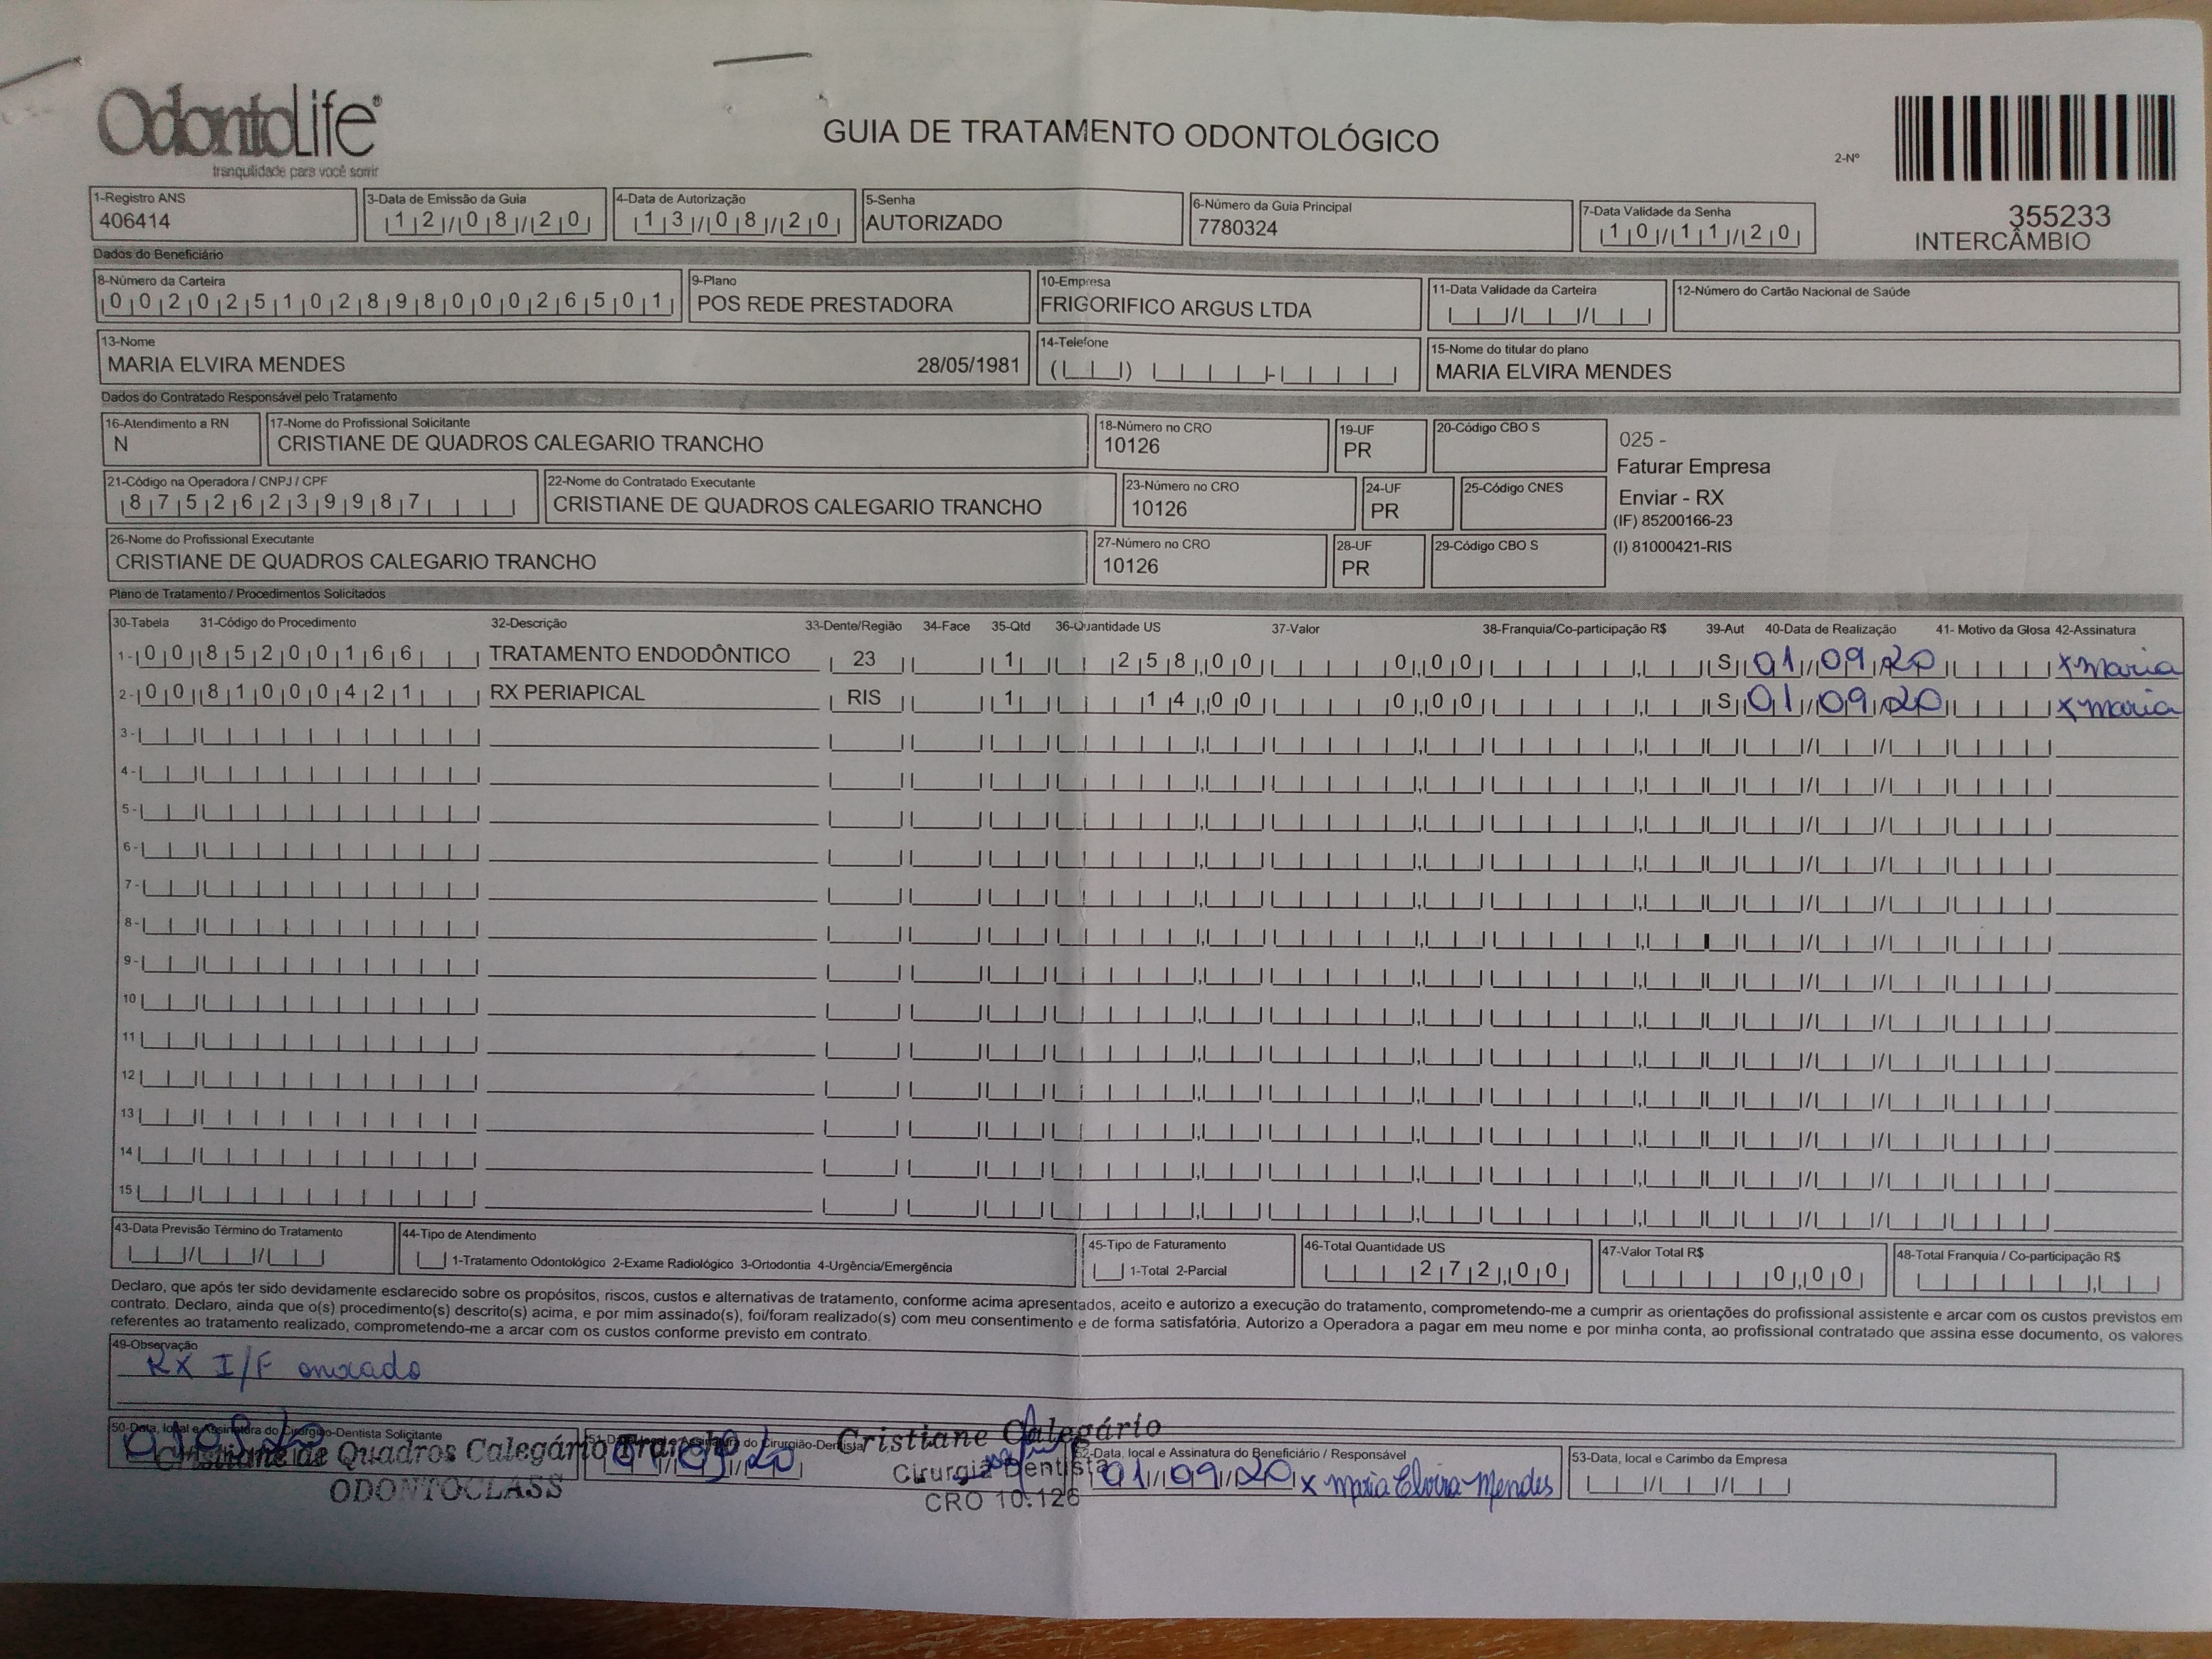 OdontoLife®
tranquilidade para você sorrir
GUIA DE TRATAMENTO ODONTOLÓGICO
2-Nº
355233
INTERCÂMBIO
1-Registro ANS
406414
3-Data de Emissão da Guia
12/08/20
4-Data de Autorização
13/08/20
5-Senha
AUTORIZADO
6-Número da Guia Principal
7780324
7-Data Validade da Senha
10/11/20
Dados do Beneficiário
8-Número da Carteira
00202510289800026501
9-Plano
POS REDE PRESTADORA
10-Empresa
FRIGORIFICO ARGUS LTDA
11-Data Validade da Carteira
12-Número do Cartão Nacional de Saúde
13-Nome
MARIA ELVIRA MENDES 28/05/1981
14-Telefone
15-Nome do titular do plano
MARIA ELVIRA MENDES
Dados do Contratado Responsável pelo Tratamento
16-Atendimento a RN
N
17-Nome do Profissional Solicitante
CRISTIANE DE QUADROS CALEGARIO TRANCHO
18-Número no CRO
10126
19-UF
PR
20-Código CBO S
025 -
Faturar Empresa
Enviar - RX
(IF) 85200166-23
(I) 81000421-RIS
21-Código na Operadora / CNPJ / CPF
87526239987
22-Nome do Contratado Executante
CRISTIANE DE QUADROS CALEGARIO TRANCHO
23-Número no CRO
10126
24-UF
PR
25-Código CNES
26-Nome do Profissional Executante
CRISTIANE DE QUADROS CALEGARIO TRANCHO
27-Número no CRO
10126
28-UF
PR
29-Código CBO S
Plano de Tratamento / Procedimentos Solicitados
30-Tabela 31-Código do Procedimento 32-Descrição 33-Dente/Região 34-Face 35-Qtd 36-Quantidade US 37-Valor 38-Franquia/Co-participação R$ 39-Aut 40-Data de Realização 41- Motivo da Glosa 42-Assinatura
1- 00 85200166 TRATAMENTO ENDODÔNTICO 23 1 258,00 0,00 S 01/09/20 x maria
2- 00 81000421 RX PERIAPICAL RIS 1 14,00 0,00 S 01/09/20 x maria
3-
4-
5-
6-
7-
8-
9-
10
11
12
13
14
15
43-Data Previsão Término do Tratamento
44-Tipo de Atendimento
1-Tratamento Odontológico 2-Exame Radiológico 3-Ortodontia 4-Urgência/Emergência
45-Tipo de Faturamento
1-Total 2-Parcial
46-Total Quantidade US
272,00
47-Valor Total R$
0,00
48-Total Franquia / Co-participação R$
Declaro, que após ter sido devidamente esclarecido sobre os propósitos, riscos, custos e alternativas de tratamento, conforme acima apresentados, aceito e autorizo a execução do tratamento, comprometendo-me a cumprir as orientações do profissional assistente e arcar com os custos previstos em
contrato. Declaro, ainda que o(s) procedimento(s) descrito(s) acima, e por mim assinado(s), foi/foram realizado(s) com meu consentimento e de forma satisfatória. Autorizo a Operadora a pagar em meu nome e por minha conta, ao profissional contratado que assina esse documento, os valores
referentes ao tratamento realizado, comprometendo-me a arcar com os custos conforme previsto em contrato.
49-Observação
RX I/F
50-Data, local e Assinatura do Cirurgião-Dentista Solicitante
Cristiane de Quadros Calegário
ODONTOCLASS
do Cirurgião-Dentista
01/09/20
Cristiane Calegário
Cirurgiã Dentista
CRO 10.126
52-Data, local e Assinatura do Beneficiário / Responsável
01/09/20 x Maria Elvira Mendes
53-Data, local e Carimbo da Empresa